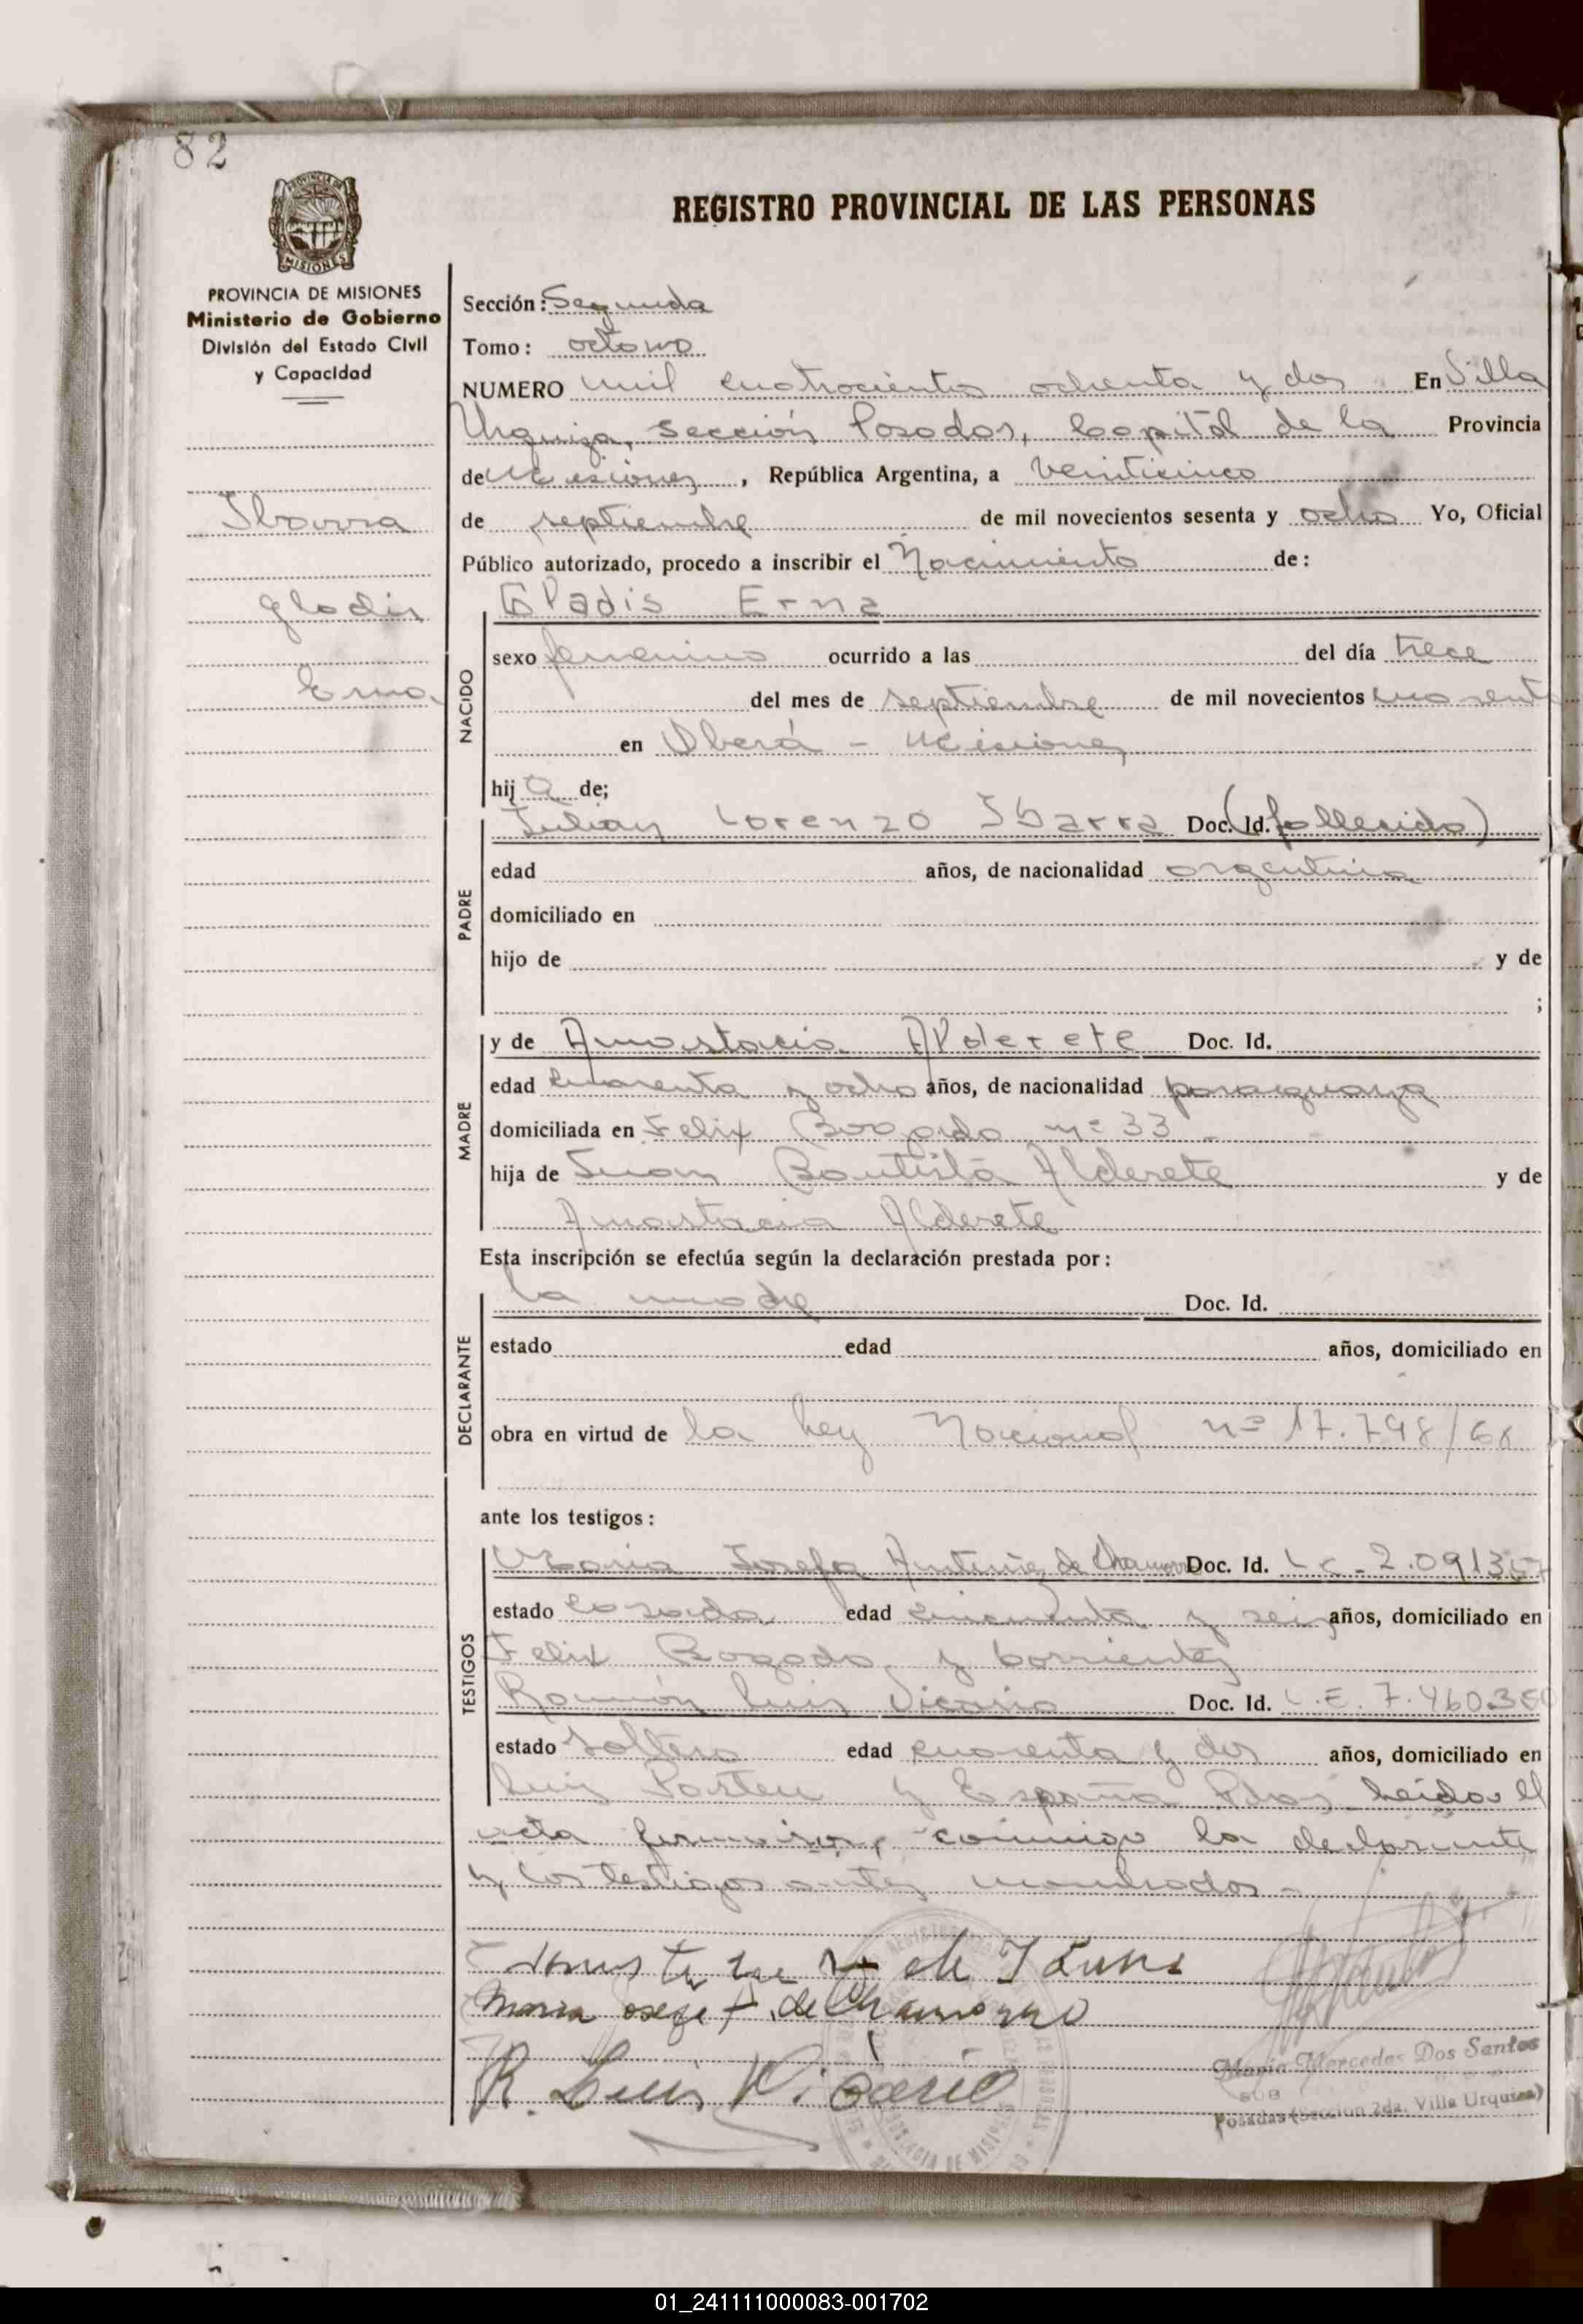 82
REGISTRO PROVINCIAL DE LAS PERSONAS
MISIONES
PROVINCIA DE MISIONES
Ministerio de Gobierno
División del Estado Civil
y Capacidad
Ibarra
Gladis
Erna
Sección: Segunda
Tomo: octavo
NUMERO mil cuatrocientos ochenta y dos En Villa
Urquiza, sección Posadas, Capital de la Provincia
de Misiones, República Argentina, a veinticinco
de septiembre de mil novecientos sesenta y ocho Yo, Oficial
Público autorizado, procedo a inscribir el Nacimiento de:
NACIDO
Gladis Erna
sexo femenino ocurrido a las del día trece
del mes de septiembre de mil novecientos cuarenta
en Oberá - Misiones
hij a de;
PADRE
Julian Lorenzo Ibarra Doc. Id. (fallecido)
edad años, de nacionalidad argentina
domiciliado en
hijo de y de
;
MADRE
y de Anastacia Alderete Doc. Id.
edad cuarenta y ocho años, de nacionalidad paraguaya
domiciliada en Felix Bogado nº 33 -
hija de Juan Bautista Alderete y de
Anastacia Alderete
Esta inscripción se efectúa según la declaración prestada por:
DECLARANTE
la madre Doc. Id.
estado edad años, domiciliado en
obra en virtud de la Ley Nacional nº 17.798/68
ante los testigos:
TESTIGOS
Maria Josefa Antunez de Chamorro Doc. Id. L C - 2.091357
estado casada edad cincuenta y seis años, domiciliado en
Felix Bogado y Corrientes
Ramón Luis Vicario Doc. Id. L.E. 7.460.350
estado soltero edad cuarenta y dos años, domiciliado en
Luis Pasteu y España Pdas. Leída el
acta firmaron, conmigo la declarante
y los testigos antes nombrados -
de
Maria osefa A. de Chamorro
R. Luis Vicario
Maria Mercedes Dos Santos
SUB
Posadas (Sección 2da. Villa Urquiza)
01_241111000083-001702